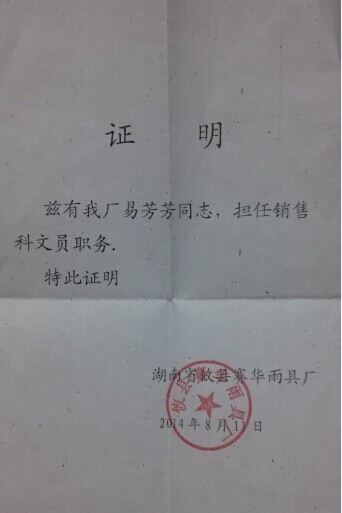 证 明
兹有我厂易芳芳同志，担任销售
科文员职务.
特此证明
湖南省攸县寒华雨具厂
2014年8月11日